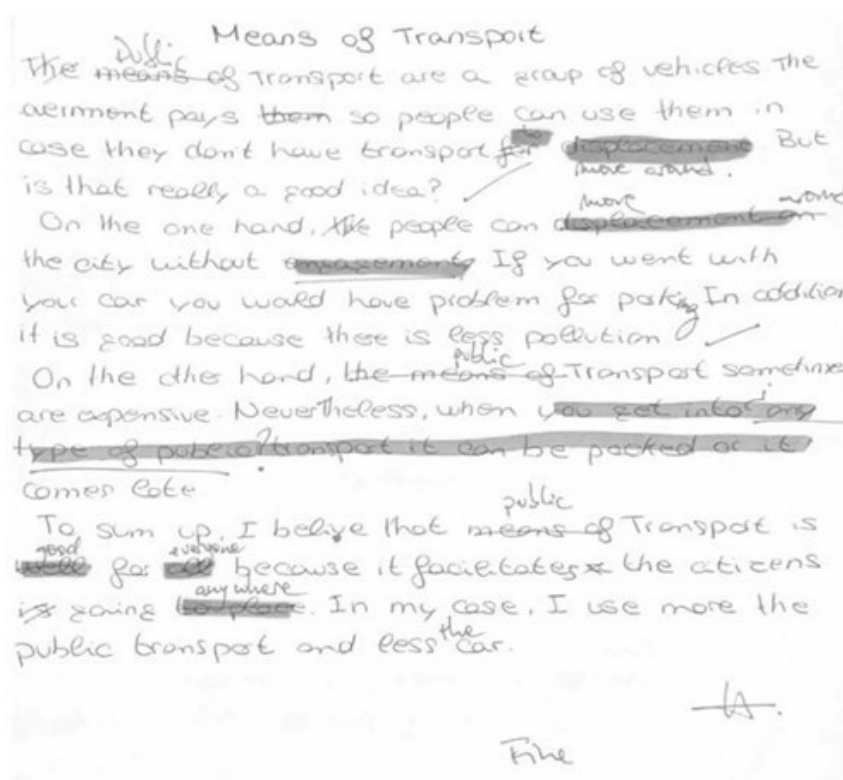 Means of Transport
public
The means of Transport are a group of vehicles the
vernment pays them so people can use them in
to
case they don't have transport for displacement But
move around.
is that really a good idea?
move around
On the one hand, the people can displacement on
the city without If you went with
your car you would have problem for parking In addition
it is good because there is less pollution
public
On the other hand, the means of Transport sometimes
are expensive. Nevertheless, when you get into any
type of public? transport it can be packed or it
comes late
public
To sum up, I belive that means of Transport is
good everyone
well for all because it facilitates the citizens
anywhere
is going to place. In my case, I use more the
the
public transport and less car.
Fine